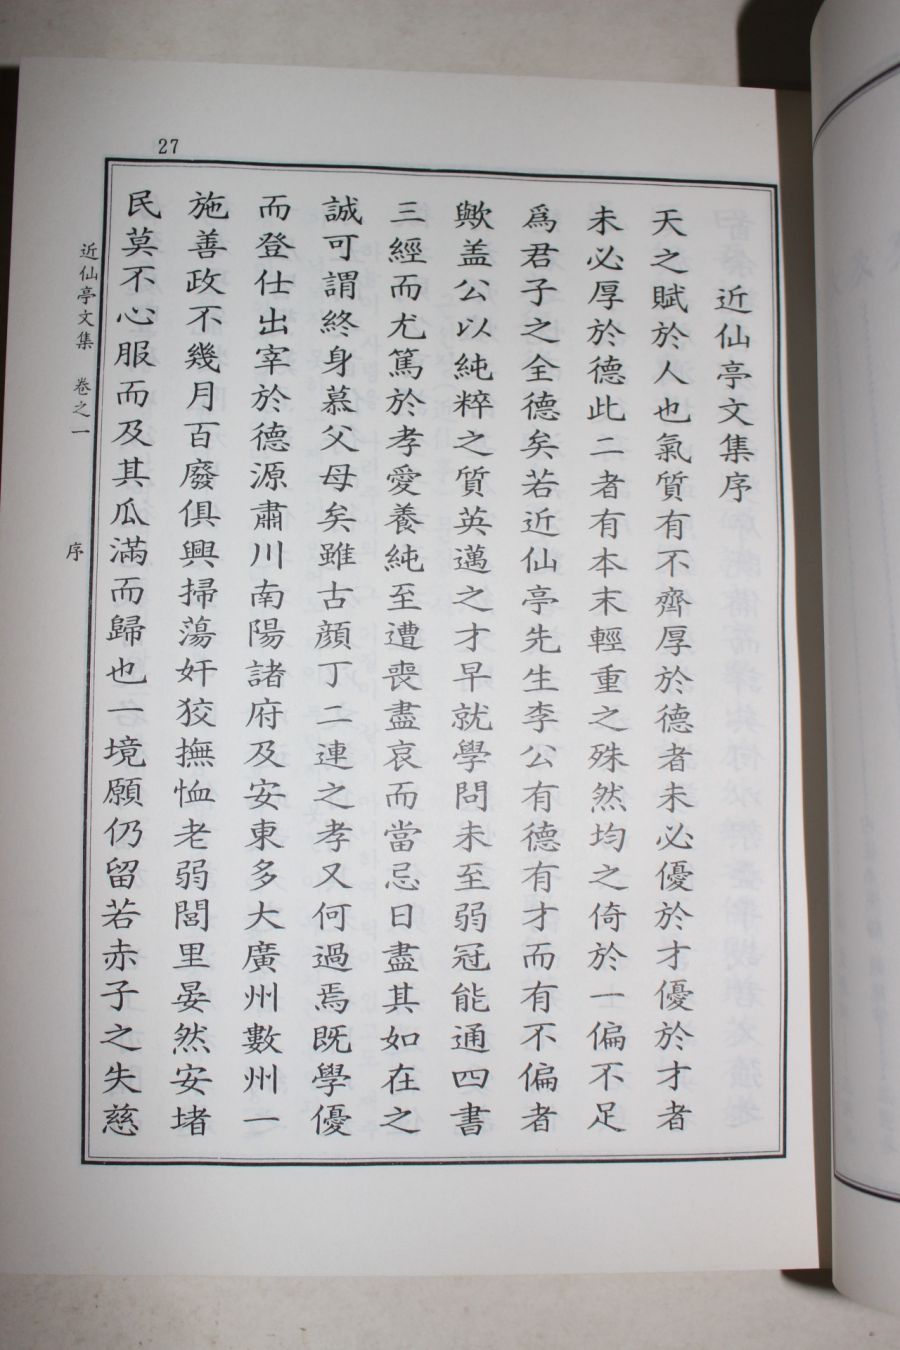 27
近仙亭文集序
天之賦於人也氣質有不齊厚於德者未必優於才優於才者
未必厚於德此二者有本末輕重之殊然均之倚於一偏不足
爲君子之全德矣若近仙亭先生李公有德有才而有不偏者
歟盖公以純粹之質英邁之才早就學問未至弱冠能通四書
三經而尤篤於孝愛養純至遭喪盡哀而當忌日盡其如在之
誠可謂終身慕父母矣雖古顔丁二連之孝又何過焉既學優
而登仕出宰於德源肅川南陽諸府及安東多大廣州數州一
施善政不幾月百廢俱興掃蕩奸狡撫恤老弱閭里晏然安堵
民莫不心服而及其瓜滿而歸也一境願仍留若赤子之失慈
近仙亭文集 卷之一
序